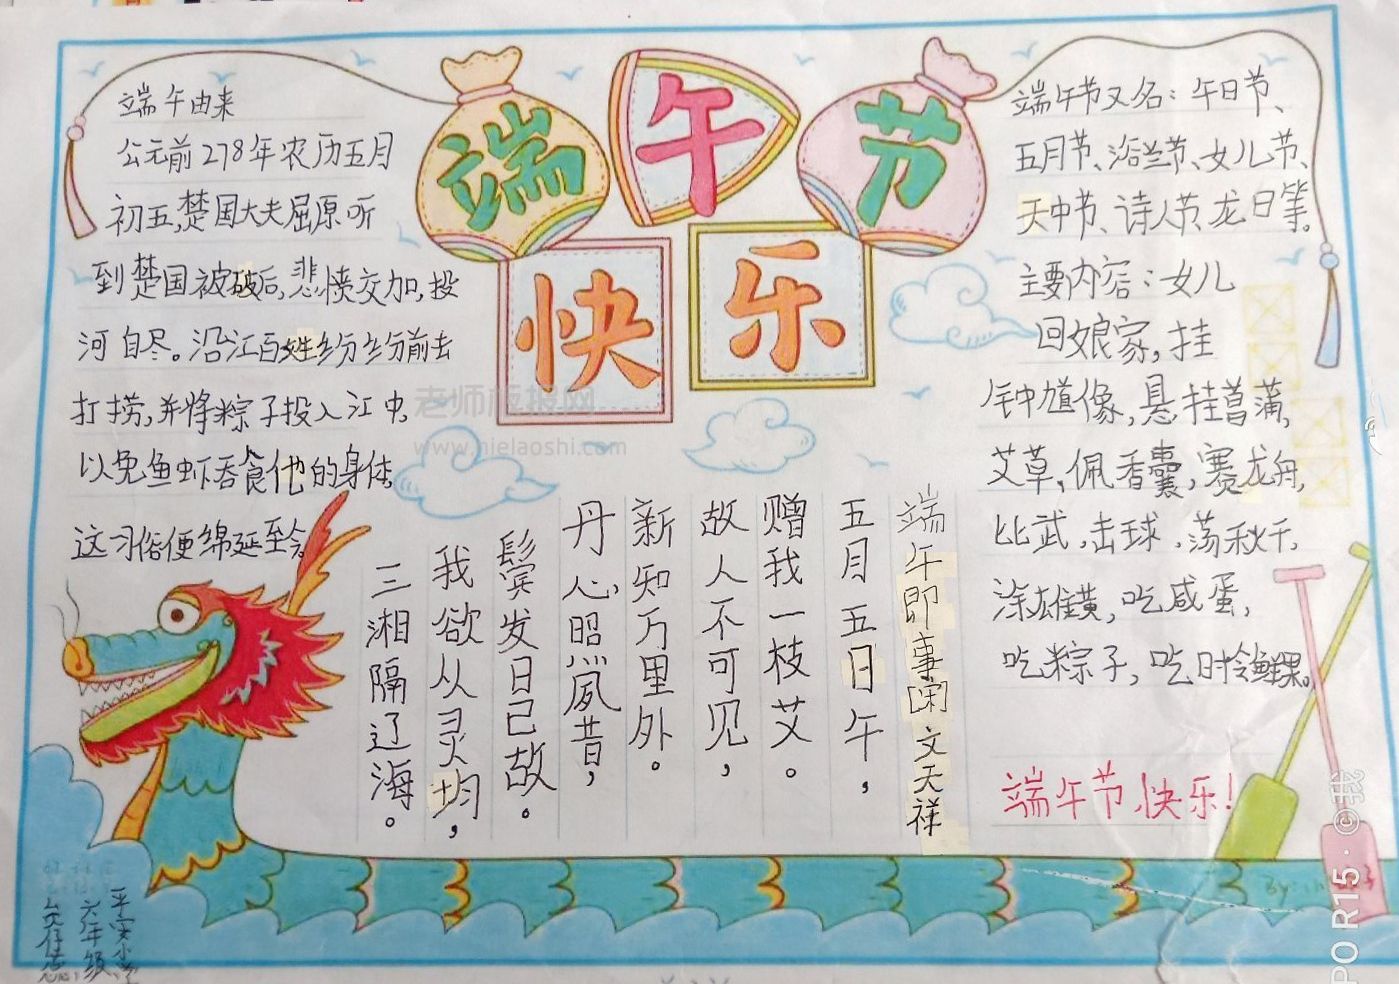 端午节
快乐
端午由来
公元前278年农历五月
初五,楚国大夫屈原听
到楚国被破后,悲愤交加,投
河自尽。沿江百姓纷纷前去
打捞,并将粽子投入江中,
以免鱼虾吞食他的身体,
这习俗便绵延至今。
端午节又名:午日节、
五月节、浴兰节、女儿节、
天中节、诗人节、龙日等。
主要内容:女儿
回娘家,挂
钟馗像,悬挂菖蒲,
艾草,佩香囊,赛龙舟,
比武,击球,荡秋千,
涂雄黄,吃咸蛋,
吃粽子,吃时令鲜果。
端午节快乐!
端午即事[宋]文天祥
五月五日午,
赠我一枝艾。
故人不可见,
新知万里外。
丹心照夙昔,
鬓发日已故。
我欲从灵均,
三湘隔辽海。
老师板报网
六年级
PO R15 · ©我